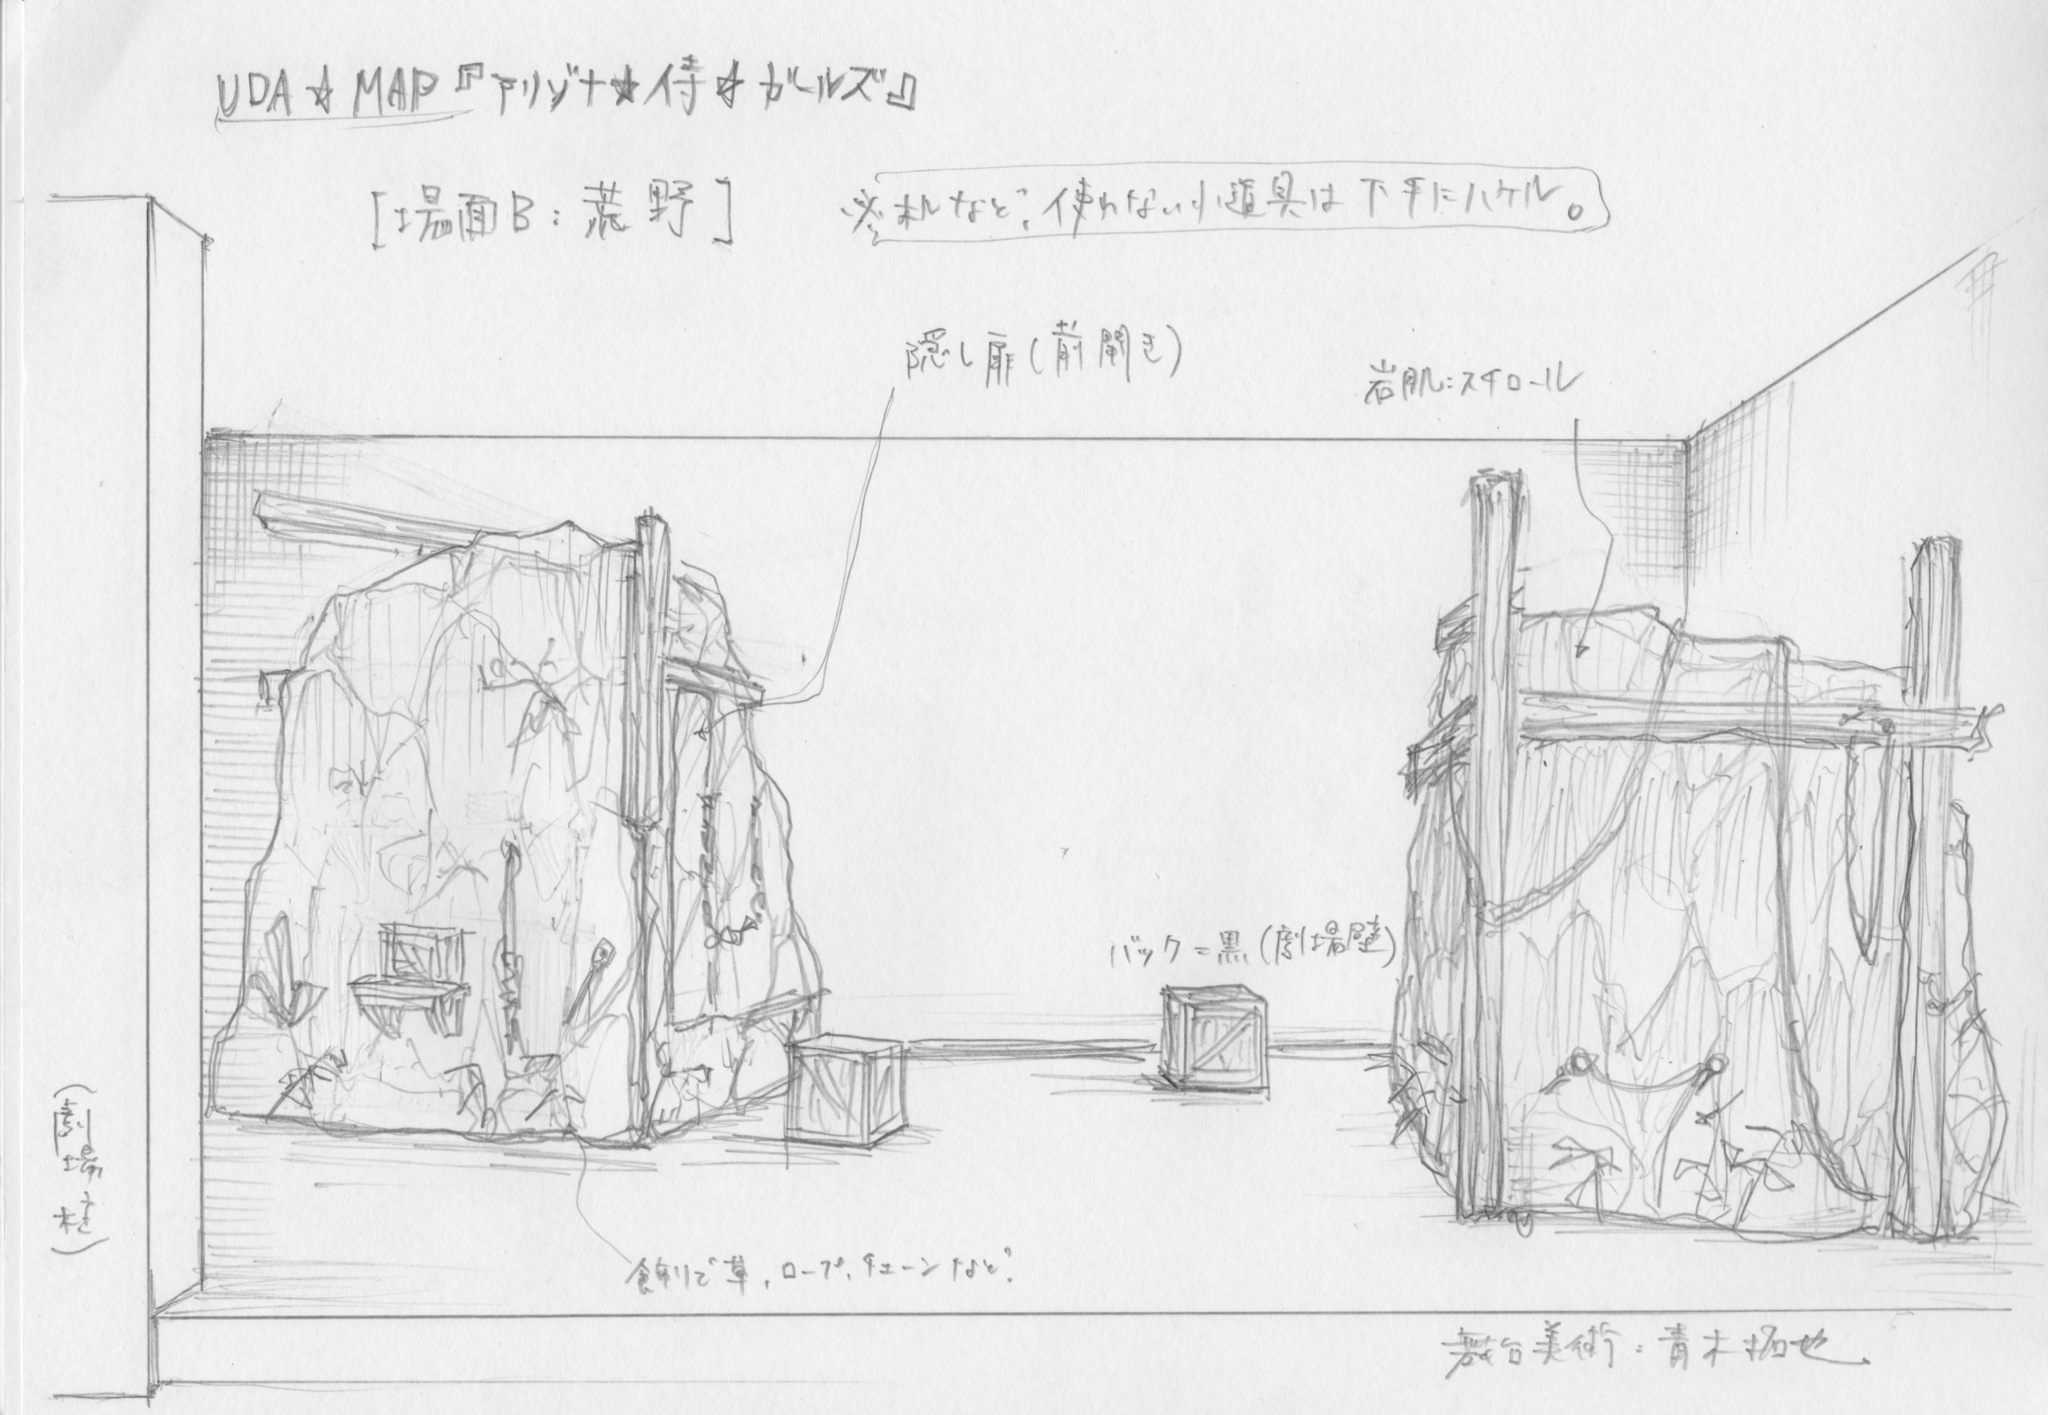 UDA☆MAP『アリゾナ★侍☆ガールズ』
[場面B:荒野]
※札など、使わない小道具は下手にハケル。
隠し扉(前開き)
岩肌:スチロール
バック=黒(劇場壁)
(劇場柱)
飾りで草、ロープ、チェーンなど。
舞台美術:青木拓也